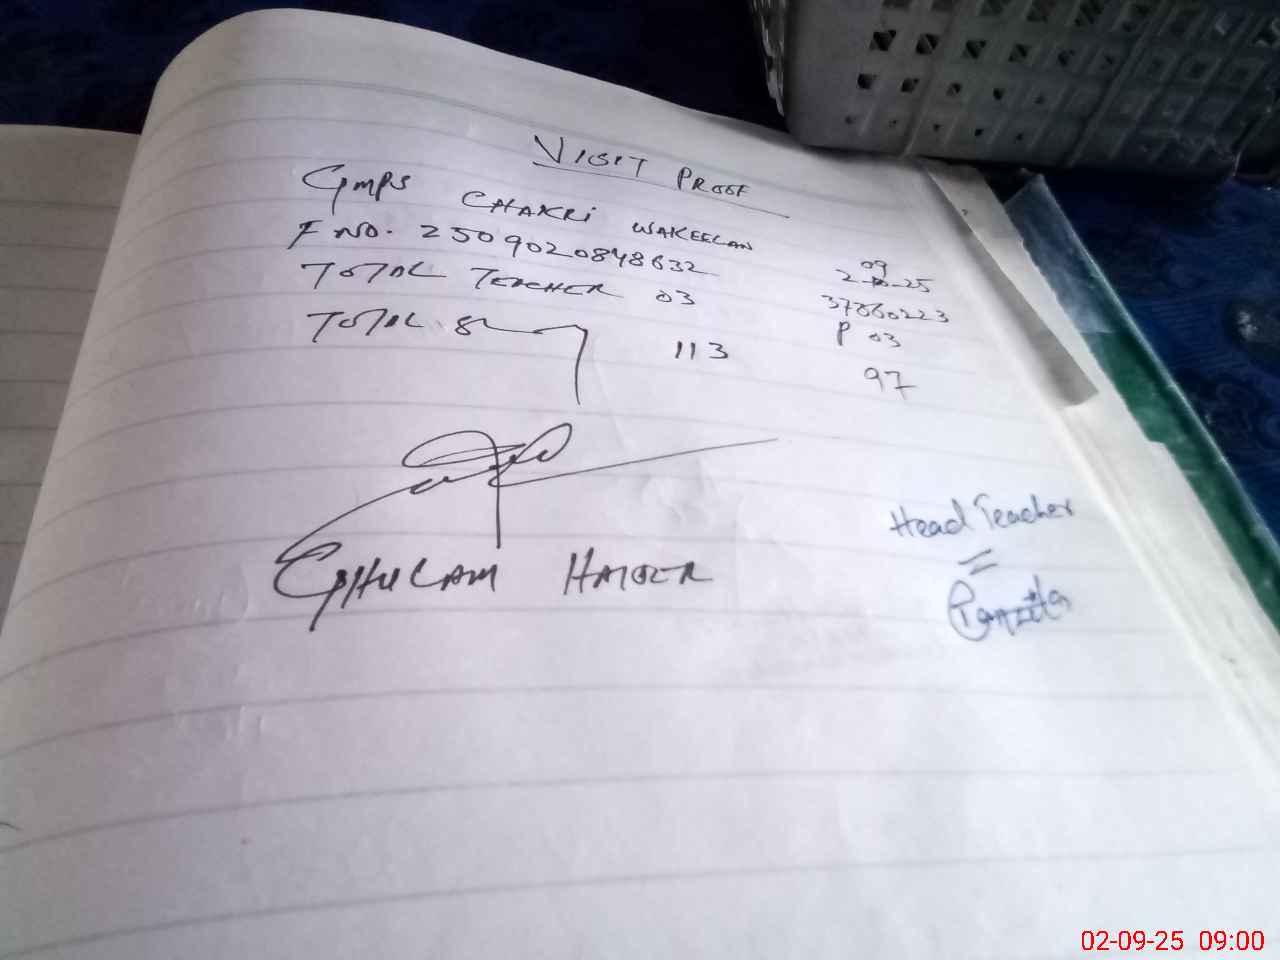 VISIT PROOF
GMPS CHAKRI WAKEELAN 2-09-25
F NO. 2509020848632 37360223
TOTAL TEACHER 03 P 03
TOTAL 113 97
GHULAM HAIDER
Head Teacher
Tanzila
02-09-25 09:00